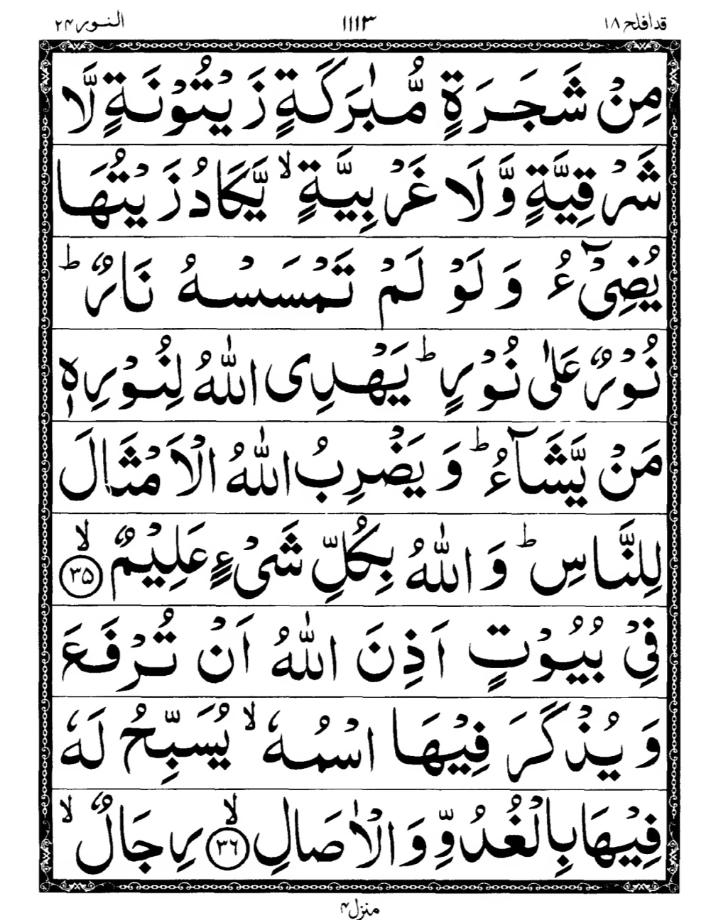 قد افلح ۱۸ ۱۱۱۳ النور ۲۴
مِنْ شَجَرَةٍ مُّبٰرَكَةٍ زَيْتُوْنَةٍ لَّا
شَرْقِيَّةٍ وَّلَا غَرْبِيَّةٍ ۙ يَّكَادُ زَيْتُهَا
يُضِیْٓءُ وَ لَوْ لَمْ تَمْسَسْهُ نَارٌ ؕ
نُوْرٌ عَلٰى نُوْرٍ ؕ يَهْدِی اللّٰهُ لِنُوْرِهٖ
مَنْ يَّشَآءُ ؕ وَ يَضْرِبُ اللّٰهُ الْاَمْثَالَ
لِلنَّاسِ ؕ وَ اللّٰهُ بِكُلِّ شَیْءٍ عَلِيْمٌ ۙ ﴿۳۵﴾
فِیْ بُيُوْتٍ اَذِنَ اللّٰهُ اَنْ تُرْفَعَ
وَ يُذْكَرَ فِيْهَا اسْمُهٗ ۙ يُسَبِّحُ لَهٗ
فِيْهَا بِالْغُدُوِّ وَ الْاٰصَالِ ۙ ﴿۳۶﴾ رِجَالٌ ۙ
منزل ۴